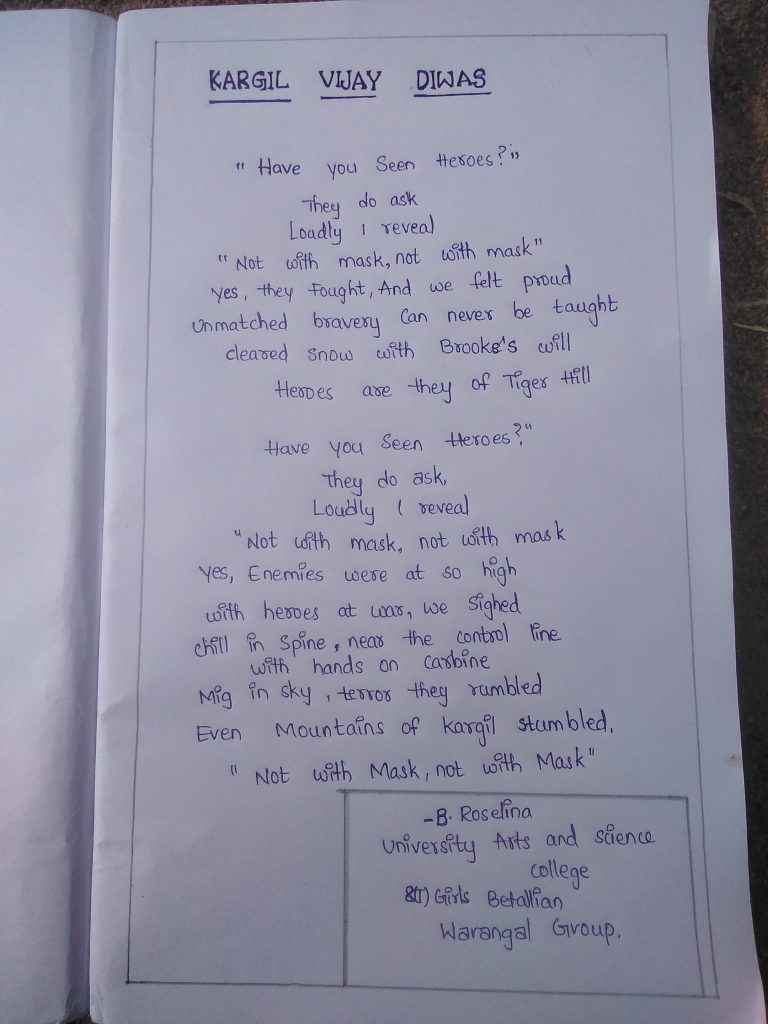 KARGIL VIJAY DIWAS
" Have you Seen Heroes?"
They do ask
Loudly I reveal
" Not with mask, not with mask"
Yes, they Fought, And we felt proud
Unmatched bravery Can never be taught
cleared snow with Brooke's will
Heroes are they of Tiger Hill
Have you Seen Heroes?"
They do ask,
Loudly I reveal
"Not with mask, not with mask
Yes, Enemies were at so high
with heroes at war, we Sighed
chill in Spine, near the control line
with hands on Carbine
Mig in sky, terror they rumbled
Even Mountains of Kargil stumbled.
" Not with Mask, not with Mask"
-B. Roselina
University Arts and Science
College
8(T) Girls Betallian
Warangal Group.